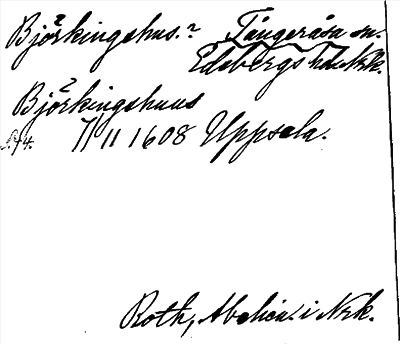 Björkingshus.? Tångeråsa sn.
Edsbergs hd Nrk.
Björkingshuus
S. 74. 7/11 1608 Uppsala.
Roth, Abelien. i Nrk.